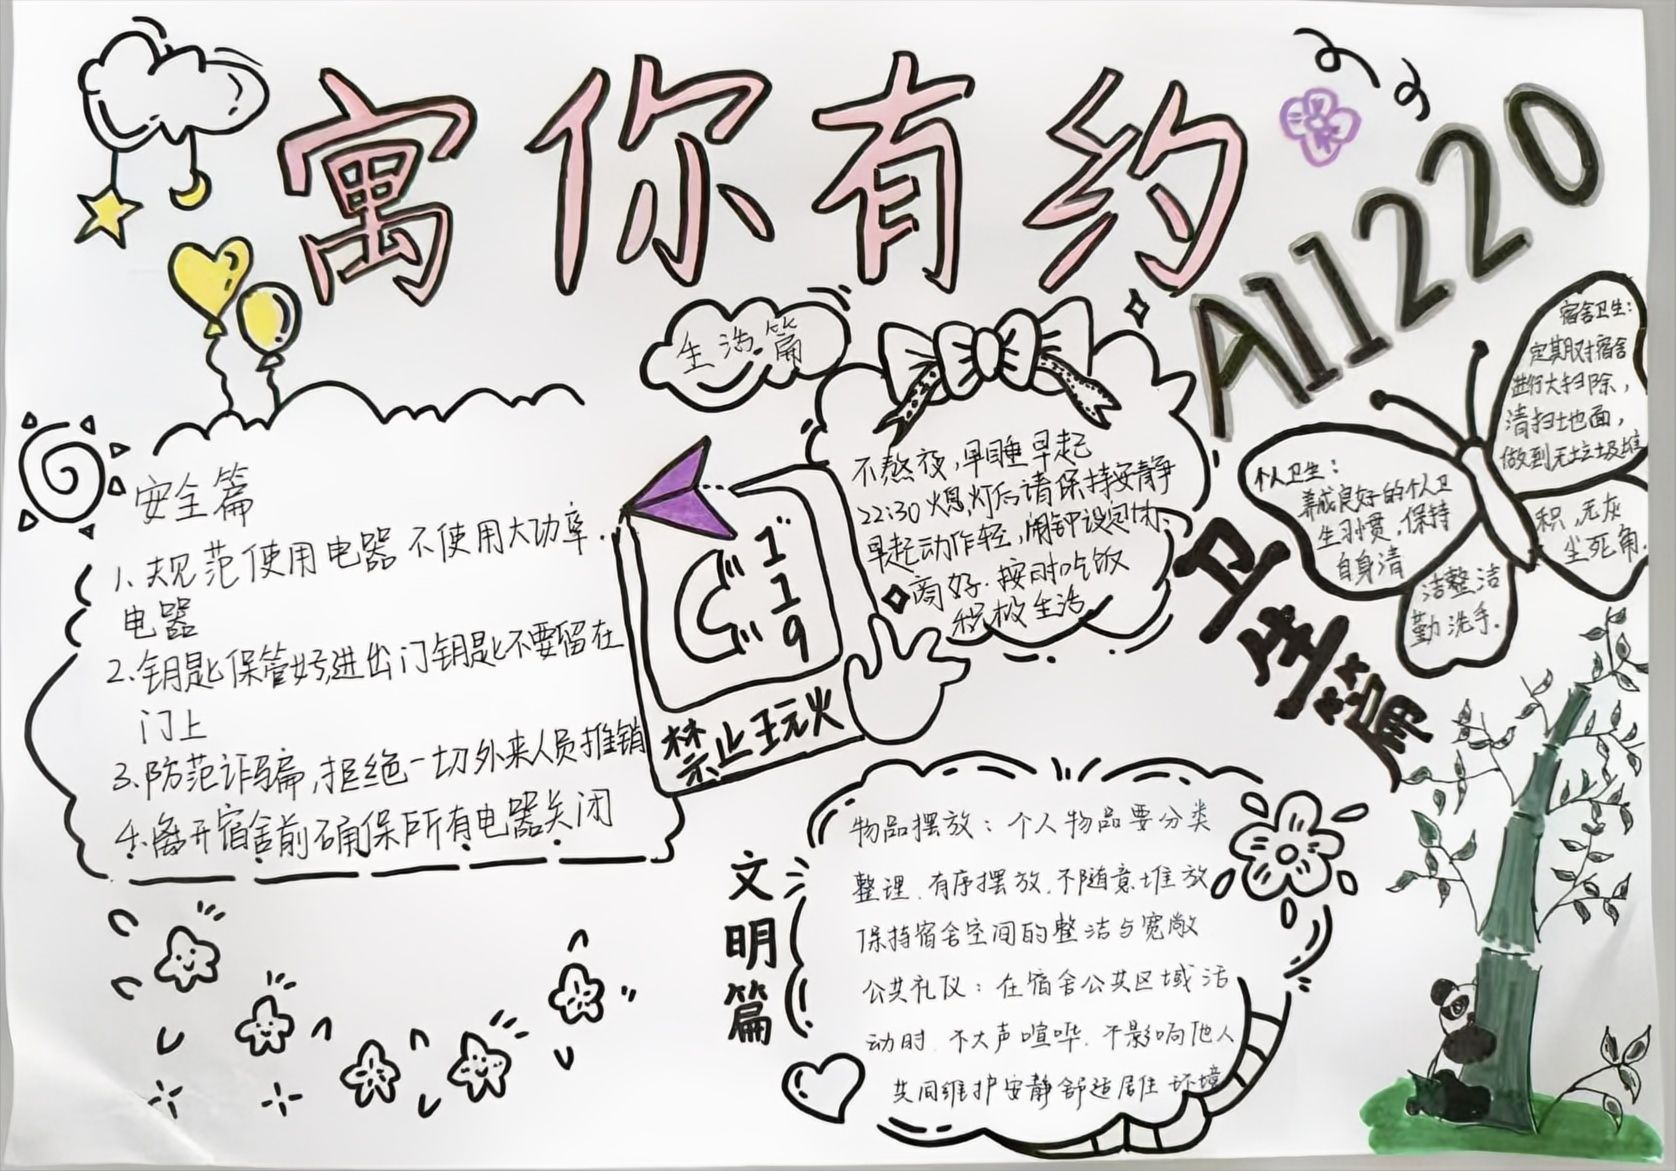 寓你有约
A11220
生活篇
不熬夜，早睡早起
22:30熄灯后请保持安静
早起动作轻，闹钟设
商好．按时吃饭
积极生活
安全篇
1、规范使用电器 不使用大功率
电器
2.钥匙保管好，进出门钥匙不要留在
门上
3.防范诈骗，拒绝一切外来人员推销
4.离开宿舍前确保所有电器关闭
119
禁止玩火
卫生篇
个人卫生：
养成良好的个人卫
生习惯，保持
自身清
洁整洁
勤洗手．
宿舍卫生：
定期对宿舍
进行大扫除，
清扫地面，
做到无垃圾堆
积，无灰
尘死角．
文明篇
物品摆放：个人物品要分类
整理．有序摆放．不随意堆放
保持宿舍空间的整洁与宽敞
公共礼仪：在宿舍公共区域活
动时．不大声喧哗．不影响他人
共同维护安静舒适居住环境